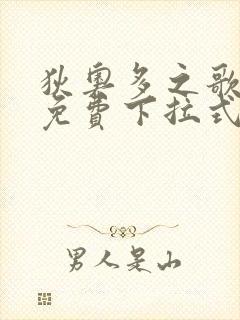 狄奧多之歌
免費下拉式
男人是山